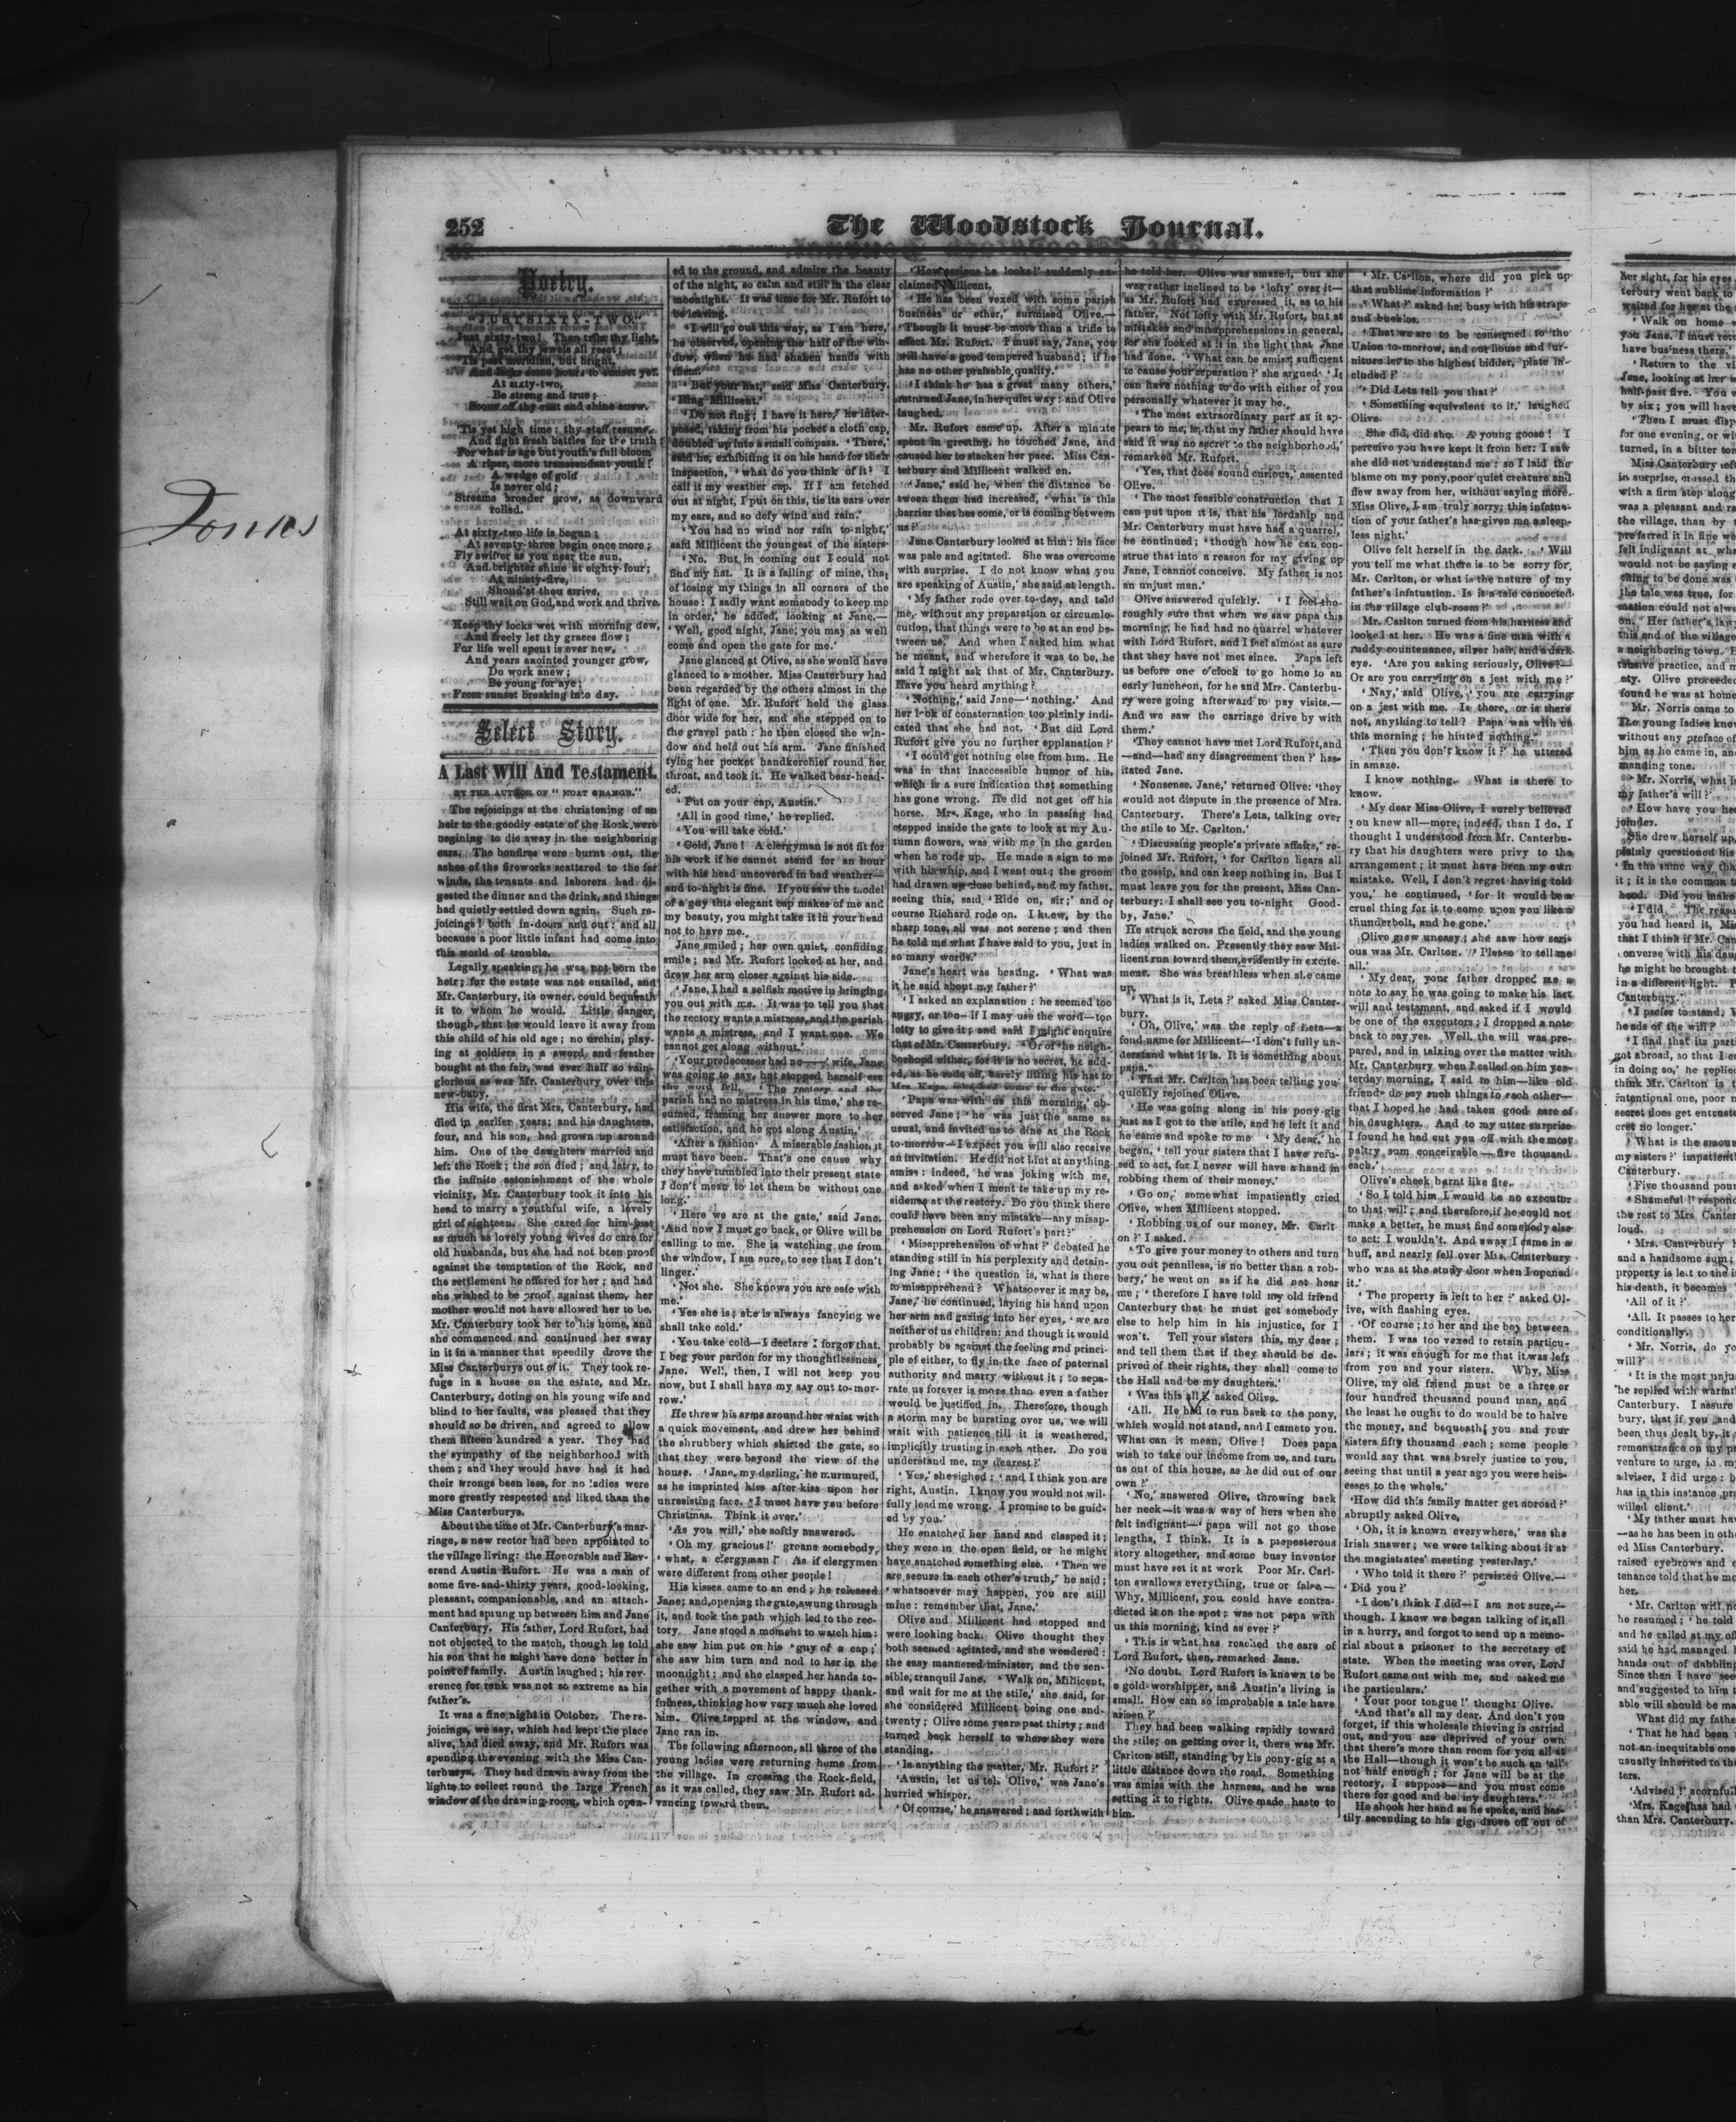 Jones
252
The Woodstock Journal.
Poetry.
"JUST SIXTY-TWO."
Just sixty-two! Then trim thy light,
And get thy jewels all reset;
'Tis past meridian, but bright,
And lacks some hours to sunset yet.
At sixty-two,
Be strong and true;
Scour off thy rust and shine anew.
'Tis yet high time; thy staff resume,
And fight fresh battles for the truth;
For what is age but youth's full bloom
A riper, more transcendent youth!
A wedge of gold
Is never old;
Streams broader grow, as downward
rolled.
At sixty-two life is begun;
At seventy-three begin once more;
Fly swifter as you near the sun,
And brighter shine at eighty-four;
At ninety-five,
Shoud'st thou arrive,
Still wait on God, and work and thrive.
Keep thy locks wet with morning dew,
And freely let thy graces flow;
For life well spent is ever new,
And years anointed younger grow,
Do work anew;
Be young for aye;
From sunset breaking into day.
Select Story.
A Last Will And Testament.
BY THE AUTHOR OF "MOAT GRANGE."
The rejoicings at the christening of an
heir to the goodly estate of the Rock were
begining to die away in the neighboring
ears. The bonfires were burnt out, the
ashes of the fireworks scattered to the far
winds, the tenants and laborers had di-
gested the dinner and the drink, and things
had quietly settled down again. Such re-
joicings! both in-doors and out: and all
because a poor little infant had come into
this world of trouble.
Legally speaking, he was not born the
heir; for the estate was not entailed, and
Mr. Canterbury, its owner, could bequeath
it to whom he would. Little danger,
though, that he would leave it away from
this child of his old age; no urchin, play-
ing at soldiers in a sword and feather
bought at the fair, was ever half so vain-
glorious as was Mr. Canterbury over this
new-baby.
His wife, the first Mrs. Canterbury, had
died in earlier years; and his daughters,
four, and his son, had grown up around
him. One of the daughters married and
left the Rock; the son died; and later, to
the infinite astonishment of the whole
vicinity, Mr. Canterbury took it into his
head to marry a youthful wife, a lovely
girl of eighteen. She cared for him just
as much as lovely young wives do care for
old husbands, but she had not been proof
against the temptation of the Rock, and
the settlement he offered for her; and had
she wished to be proof against them, her
mother would not have allowed her to be.
Mr. Canterbury took her to his home, and
she commenced and continued her sway
in it in a manner that speedily drove the
Miss Canterburys out of it. They took re-
fuge in a house on the estate, and Mr.
Canterbury, doting on his young wife and
blind to her faults, was pleased that they
should so be driven, and agreed to allow
them fifteen hundred a year. They had
the sympathy of the neighborhood with
them; and they would have had it had
their wrongs been less, for no ladies were
more greatly respected and liked than the
Miss Canterburys.
About the time of Mr. Canterbury's mar-
riage, a new rector had been appointed to
the village living: the Honorable and Rev-
erend Austin Rufort. He was a man of
some five-and-thirty years, good-looking,
pleasant, companionable, and an attach-
ment had sprung up between him and Jane
Canterbury. His father, Lord Rufort, had
not objected to the match, though he told
his son that he might have done better in
point of family. Austin laughed; his rev-
erence for rank was not so extreme as his
father's.
It was a fine night in October. The re-
joicings, we say, which had kept the place
alive, had died away, and Mr. Rufort was
spending the evening with the Miss Can-
terburys. They had drawn away from the
lights to collect round the large French
window of the drawing-room, which open-
ed to the ground, and admire the beauty
of the night, so calm and still in the clear
moonlight. It was time for Mr. Rufort to
be leaving.
'I will go out this way, as I am here,'
he observed, opening the half of the win-
dow, when he had shaken hands with
them.
'But your hat,' said Miss Canterbury.
'Ring Millicent.'
'Do not ring; I have it here,' he inter-
posed, taking from his pocket a cloth cap,
doubled up into a small compass. 'There,'
said he, exhibiting it on his hand for their
inspection, 'what do you think of it? I
call it my weather cap. If I am fetched
out at night, I put on this, tie its ears over
my ears, and so defy wind and rain.'
'You had no wind nor rain to-night,'
said Millicent the youngest of the sisters.
'No. But in coming out I could not
find my hat. It is a failing of mine, that
of losing my things in all corners of the
house: I sadly want somebody to keep me
in order,' he added, looking at Jane.—
'Well, good night, Jane; you may as well
come and open the gate for me.'
Jane glanced at Olive, as she would have
glanced to a mother. Miss Canterbury had
been regarded by the others almost in the
light of one. Mr. Rufort held the glass
door wide for her, and she stepped on to
the gravel path: he then closed the win-
dow and held out his arm. Jane finished
tying her pocket handkerchief round her
throat, and took it. He walked bear-head-
ed.
'Put on your cap, Austin.'
'All in good time,' he replied.
'You will take cold.'
'Cold, Jane! A clergyman is not fit for
his work if he cannot stand for an hour
with his head uncovered in bad weather—
and to-night is fine. If you saw the model
of a guy this elegant cap makes of me and
my beauty, you might take it in your head
not to have me.
Jane smiled; her own quiet, confiding
smile; and Mr. Rufort looked at her, and
drew her arm closer against his side.
'Jane, I had a selfish motive in bringing
you out with me. It was to tell you that
the rectory wants a mistress, and the parish
wants a mistress, and I want one. We
cannot get along without.'
'Your predecessor had no——' wife, Jane
was going to say, but stopped herself ere
the word fell. 'The rectory and the
parish had no mistress in his time,' she re-
sumed, framing her answer more to her
satisfaction, and he got along Austin.'
'After a fashion. A miserable fashion it
must have been. That's one cause why
they have tumbled into their present state
I don't mean to let them be without one
long.'
'Here we are at the gate,' said Jane.
'And now I must go back, or Olive will be
calling to me. She is watching me from
the window, I am sure, to see that I don't
linger.'
'Not she. She knows you are safe with
me.'
'Yes she is; she is always fancying we
shall take cold.'
'You take cold—I declare I forgot that.
I beg your pardon for my thoughtlessness,
Jane. Well, then, I will not keep you
now, but I shall have my say out to-mor-
row.'
He threw his arms around her waist with
a quick movement, and drew her behind
the shrubbery which skirted the gate, so
that they were beyond the view of the
house. 'Jane, my darling,' he murmured,
as he imprinted kiss after kiss upon her
unresisting face. 'I must have you before
Christmas. Think it over.'
'As you will,' she softly answered.
'Oh my gracious!' groans somebody,
'what, a clergyman!' As if clergymen
were different from other people!
His kisses came to an end; he released
Jane; and, opening the gate, swung through
it, and took the path which led to the rec-
tory. Jane stood a moment to watch him:
she saw him put on his 'guy of a cap;'
she saw him turn and nod to her in the
moonlight: and she clasped her hands to-
gether with a movement of happy thank-
fulness, thinking how very much she loved
him. Olive tapped at the window, and
Jane ran in.
The following afternoon, all three of the
young ladies were returning home from
the village. In crossing the Rock-field,
as it was called, they saw Mr. Rufort ad-
vancing toward them.
'How serious he looks!' suddenly ex-
claimed Millicent.
'He has been vexed with some parish
business or other,' surmised Olive.—
'Though it must be more than a trifle to
affect Mr. Rufort. I must say, Jane, you
will have a good tempered husband; if he
has no other praisable quality.'
'I think he has a great many others,'
returned Jane, in her quiet way: and Olive
laughed.
Mr. Rufort came up. After a minute
spent in greeting, he touched Jane, and
caused her to slacken her pace. Miss Can-
terbury and Millicent walked on.
'Jane,' said he, when the distance be-
tween them had increased, 'what is this
barrier that has come, or is coming between
us?'
Jane Canterbury looked at him: his face
was pale and agitated. She was overcome
with surprise. I do not know what you
are speaking of Austin,' she said at length.
'My father rode over to-day, and told
me, without any preparation or circumlo-
cution, that things were to be at an end be-
tween us. And when I asked him what
he meant, and wherefore it was to be, he
said I might ask that of Mr. Canterbury.
Have you heard anything?
'Nothing,' said Jane—'nothing.' And
her look of consternation too plainly indi-
cated that she had not. 'But did Lord
Rufort give you no further epplanation?'
'I could get nothing else from him. He
was in that inaccessible humor of his,
which is a sure indication that something
has gone wrong. He did not get off his
horse. Mrs. Kage, who in passing had
stepped inside the gate to look at my Au-
tumn flowers, was with me in the garden
when he rode up. He made a sign to me
with his whip, and I went out; the groom
had drawn up close behind, and my father,
seeing this, said, 'Ride on, sir;' and of
course Richard rode on. I knew, by the
sharp tone, all was not serene; and then
he told me what I have said to you, just in
so many words.'
Jane's heart was beating. 'What was
it he said about my father?'
'I asked an explanation: he seemed too
angry, or too—if I may use the word—too
lofty to give it; and said I might enquire
that of Mr. Canterbury. 'Or of the neigh-
borhood either, for it is no secret, he add-
ed, as he rode off, barely lifting his hat to
Mrs. Kage, who had come to the gate.'
'Papa was with us this morning,' ob-
served Jane; 'he was just the same as
usual, and invited us to dine at the Rock
to-morrow—I expect you will also receive
an invitation. He did not hint at anything
amiss: indeed, he was joking with me,
and asked when I ment to take up my re-
sidence at the rectory. Do you think there
could have been any mistake—any misap-
prehension on Lord Rufort's part?'
'Misapprehension of what?' debated he
standing still in his perplexity and detain-
ing Jane; 'the question is, what is there
to misapprehend? Whatsoever it may be,
Jane,' he continued, laying his hand upon
her arm and gazing into her eyes, 'we are
neither of us children: and though it would
probably be against the feeling and princi-
ple of either, to fly in the face of paternal
authority and marry without it; to sepa-
rate us forever is more than even a father
would be justified in. Therefore, though
a storm may be bursting over us, we will
wait with patience till it is weathered,
implicitly trusting in each other. Do you
understand me, my dearest?'
'Yes,' she sighed; 'and I think you are
right, Austin. I know you would not wil-
fully lead me wrong. I promise to be guid-
ed by you.'
He snatched her hand and clasped it;
they were in the open field, or he might
have snatched something else. 'Then we
are secure in each other's truth,' he said;
'whatsoever may happen, you are still
mine: remember that, Jane.'
Olive and Millicent had stopped and
were looking back. Olive thought they
both seemed agitated, and she wondered:
the easy mannered minister, and the sen-
sible, tranquil Jane. 'Walk on, Millicent,
and wait for me at the stile,' she said, for
she considered Millicent being one and-
twenty; Olive some years past thirty; and
turned back herself to where they were
standing.
'Is anything the matter, Mr. Rufort?'
'Austin, let us tell Olive,' was Jane's
hurried whispor.
'Of course,' he answered; and forthwith
he told her. Olive was amazed, but she
was rather inclined to be 'lofty' over it—
as Mr. Rufort had expressed it, as to his
father. Not lofty with Mr. Rufort, but at
mistakes and misapprehensions in general,
for she looked at it in the light that Jane
had done. 'What can be amiss sufficient
to cause your separation?' she argued. 'It
can have nothing to do with either of you
personally whatever it may be.
'The most extraordinary part as it ap-
pears to me, is, that my father should have
said it was no secret to the neighborhood,'
remarked Mr. Rufort.
'Yes, that does sound curious,' assented
Olive.
'The most feasible construction that I
can put upon it is, that his lordship and
Mr. Canterbury must have had a quarrel,'
he continued; 'though how he can con-
strue that into a reason for my giving up
Jane, I cannot conceive. My father is not
an unjust man.'
Olive answered quickly. 'I feel tho-
roughly sure that when we saw papa this
morning, he had had no quarrel whatever
with Lord Rufort, and I feel almost as sure
that they have not met since. Papa left
us before one o'clock to go home to an
early luncheon, for he and Mrs. Canterbu-
ry were going afterward to pay visits.—
And we saw the carriage drive by with
them.'
'They cannot have met Lord Rufort, and
—and—had any disagreement then?' hes-
itated Jane.
'Nonsense, Jane,' returned Olive: 'they
would not dispute in the presence of Mrs.
Canterbury. There's Leta, talking over
the stile to Mr. Carlton.'
'Discussing people's private affairs,' re-
joined Mr. Rufort, 'for Carlton hears all
the gossip, and can keep nothing in. But I
must leave you for the present, Miss Can-
terbury: I shall see you to-night Good-
by, Jane.'
He struck across the field, and the young
ladies walked on. Presently they saw Mil-
licent run toward them, evidently in excite-
ment. She was breathless when she came
up.
'What is it, Leta?' asked Miss Canter-
bury.
'Oh, Olive,' was the reply of Leta—a
fond name for Millicent—'I don't fully un-
derstand what it is. It is something about
papa.'
'That Mr. Carlton has been telling you'
quickly rejoined Olive.
'He was going along in his pony-gig
just as I got to the stile, and he left it and
he came and spoke to me 'My dear,' he
began, 'tell your sisters that I have refu-
sed to act, for I never will have a hand in
robbing them of their money.'
'Go on,' somewhat impatiently cried
Olive, when Millicent stopped.
'Robbing us of our money, Mr. Carlt-
on?' I asked.
'To give your money to others and turn
you out penniless, is no better than a rob-
bery,' he went on as if he did not hear
me; 'therefore I have told my old friend
Canterbury that he must get somebody
else to help him in his injustice, for I
won't. Tell your sisters this, my dear;
and tell them that if they should be de-
prived of their rights, they shall come to
the Hall and be my daughters.'
'Was this all?' asked Olive.
'All. He had to run back to the pony,
which would not stand, and I came to you.
What can it mean, Olive! Does papa
wish to take our income from us, and turn
us out of this house, as he did out of our
own?'
'No,' answered Olive, throwing back
her neck—it was a way of hers when she
felt indignant—'papa will not go those
lengths, I think. It is a preposterous
story altogether, and some busy inventor
must have set it at work Poor Mr. Carl-
ton swallows everything, true or false.—
Why, Millicent, you could have contra-
dicted it on the spot; was not papa with
us this morning, kind as ever?'
'This is what has reached the ears of
Lord Rufort, then, remarked Jane.
'No doubt. Lord Rufort is known to be
a gold-worshipper, and Austin's living is
small. How can so improbable a tale have
arisen?'
They had been walking rapidly toward
the stile; on getting over it, there was Mr.
Carlton still, standing by his pony-gig at a
little distance down the road. Something
was amiss with the harness, and he was
setting it to rights. Olive made haste to
him.
'Mr. Carlton, where did you pick up
that sublime information?'
'What?' asked he; busy with his straps
and buckles.
'That we are to be consigned to the
Union to-morrow, and our house and fur-
niture let to the highest bidder, plate in-
cluded?'
'Did Leta tell you that?'
'Something equivalent to it,' laughed
Olive.
She did, did she. A young goose! I
perceive you have kept it from her: I saw
she did not understand me: so I laid the
blame on my pony, poor quiet creature and
flew away from her, without saying more.
Miss Olive, I am truly sorry; this infatua-
tion of your father's has given me a sleep-
less night.'
Olive felt herself in the dark. 'Will
you tell me what there is to be sorry for,
Mr. Carlton, or what is the nature of my
father's infatuation. Is it a tale concocted
in the village club-room?'
Mr. Carlton turned from his harness and
looked at her. He was a fine man with a
ruddy countenance, silver hair, and a dark
eye. 'Are you asking seriously, Olive?—
Or are you carrying on a jest with me?'
'Nay,' said Olive, 'you are carrying
on a jest with me. Is there, or is there
not, anything to tell? Papa was with us
this morning; he hinted nothing.'
'Then you don't know it?' he uttered
in amaze.
I know nothing. What is there to
know.
'My dear Miss Olive, I surely believed
you knew all—more, indeed, than I do. I
thought I understood from Mr. Canterbu-
ry that his daughters were privy to the
arrangement; it must have been my own
mistake. Well, I don't regret having told
you,' he continued, 'for it would be a
cruel thing for it to come upon you like a
thunderbolt, and he gone.'
Olive grew uneasy; she saw how seri-
ous was Mr. Carlton. 'Please to tell me
all.'
'My dear, your father dropped me a
note to say he was going to make his last
will and testament, and asked if I would
be one of the executors; I dropped a note
back to say yes. Well, the will was pre-
pared, and in talking over the matter with
Mr. Canterbury when I called on him yes-
terday morning, I said to him—like old
friends do say such things to each other—
that I hoped he had taken good care of
his daughters. And to my utter surprise
I found he had cut you off with the most
paltry sum conceivable—five thousand
each.'
Olive's cheek burnt like fire.
'So I told him I would be no executor
to that will; and therefore, if he could not
make a better, he must find somebody else
to act; I wouldn't. And away I came in a
huff, and nearly fell over Mrs. Canterbury
who was at the study door when I opened
it.'
'The property is left to her?' asked Ol-
ive, with flashing eyes.
'Of course; to her and the boy between
them. I was too vexed to retain particu-
lars; it was enough for me that it was left
from you and your sisters. Why, Miss
Olive, my old friend must be a three or
four hundred thousand pound man, and
the least he ought to do would be to halve
the money, and bequeath you and your
sisters fifty thousand each; some people
would say that was barely justice to you,
seeing that until a year ago you were heir-
esses to the whole.'
'How did this family matter get abroad?'
abruptly asked Olive,
'Oh, it is known everywhere,' was the
Irish answer; we were talking about it at
the magistrates' meeting yesterday.'
'Who told it there?' persisted Olive.—
'Did you?'
'I don't think I did—I am not sure,—
though. I know we began talking of it, all
in a hurry, and forgot to send up a memo-
rial about a prisoner to the secretary of
state. When the meeting was over, Lord
Rufort came out with me, and asked me
the particulars.'
'Your poor tongue!' thought Olive.
'And that's all my dear. And don't you
forget, if this wholesale thieving is carried
out, and you are deprived of your own
that there's more than room for you all at
the Hall—though it won't be such an 'all'
not half enough; for Jane will be at the
rectory, I suppose—and you must come
there for good and be my daughters.'
He shook her hand as he spoke, and has-
tily ascending to his gig, drove off out of
her sight, for his eyes
terbury went back to
waited for her at the
'Walk on home—
you Jane. I must retu
have business there.'
'Return to the vi
Jane, looking at her w
half-past five. You w
by six; you will have
'Then I must disp
for one evening, or wi
turned, in a bitter ton
Miss Canterbury left
in surprise, crossed th
with a firm step along
was a pleasant and ra
the village, than by
preferred it in fine we
felt indignant at wh
would not be saying e
thing to be done was
the tale was true, for
mation could not alw
on. Her father's law
this end of the village
a neighboring town. H
tensive practice, and m
ety. Olive proceede
found he was at home
Mr. Norris came to
The young ladies knew
without any preface of
him as he came in, an
manding tone.
'Mr. Norris, what is
my father's will?'
'How have you hea
joinder.
She drew herself up,
plainly questioned his
'In the same way tha
it; it is the common t
hood. Did you make
'I did. The reaso
you had heard it, Mis
that I think if Mr. Can
converse with his dau
he might be brought t
in a different light. P
Canterbury.'
'I prefer to stand; W
heads of the will?'
'I find that its parti
got abroad, so that I c
in doing so,' he replied
think Mr. Carlton is t
intentional one, poor m
secret does get entrust
cret no longer.'
'What is the amoun
my sisters?' impatientl
Canterbury.
'Five thousand poun
'Shameful!' respon
the rest to Mrs. Canter
loud.
'Mrs. Canterbury h
and a handsome sum;
property is left to the
his death, it becomes
'All of it?'
'All. It passes to her
conditionally.
'Mr. Norris, do yo
will?'
'It is the most unjus
he replied with warmth
Canterbury. I assure
bury, that if you and
been thus dealt by, it
remonstrance on my p
venture to urge, in my
adviser, I did urge: b
has in this instance pr
willed client.'
'My father must hav
—as he has been in othe
ed Miss Canterbury.
raised eyebrows and c
tenance told that he mo
her.
'Mr. Carlton will no
he resumed; 'he told
and he called at my off
said he had managed
hands out of dabbling
Since then I have see
and suggested to him t
able will should be ma
What did my fathe
'That he had been
not an inequitable one
usually inherited to the
ters.
'Advised!' scornfull
'Mrs. Kage has had
than Mrs. Canterbury.